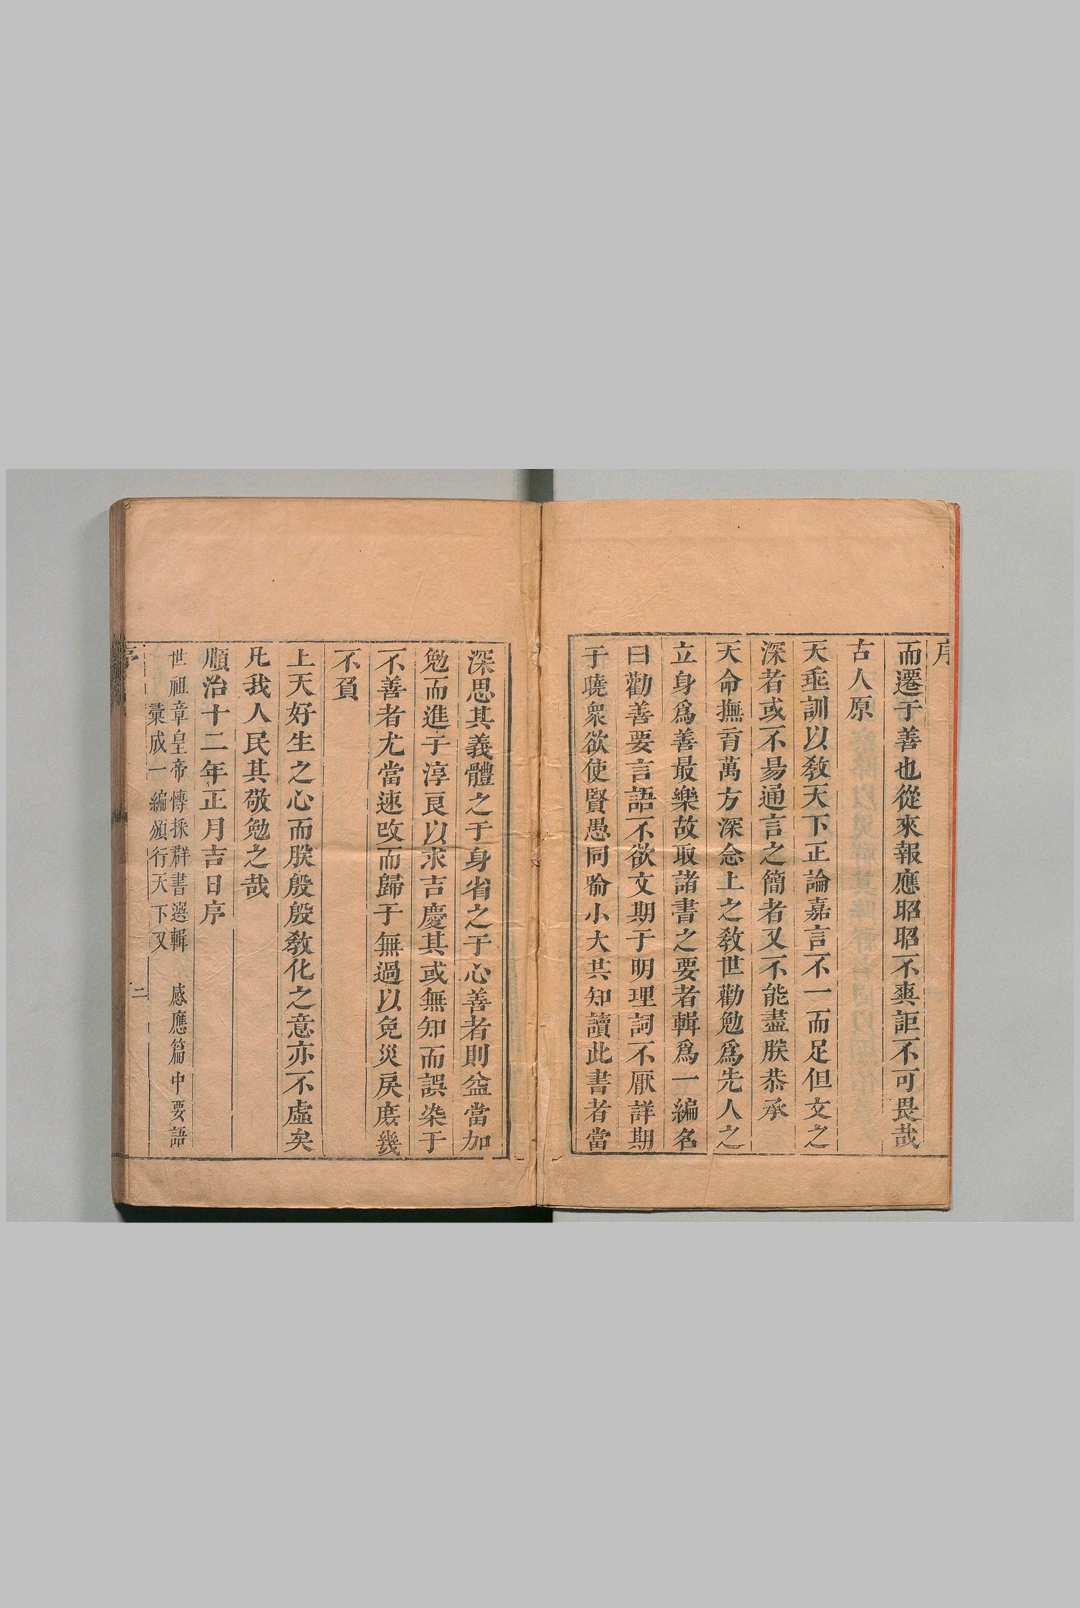 序
而遷于善也從來報應昭昭不爽詎不可畏哉
古人原
天垂訓以敎天下正論嘉言不一而足但文之
深者或不易通言之簡者又不能盡朕恭承
天命撫育萬方深念上之敎世勸勉爲先人之
立身爲善最樂故取諸書之要者輯爲一編名
曰勸善要言語不欲文期于明理詞不厭詳期
于曉衆欲使賢愚同喻小大共知讀此書者當
深思其義體之于身省之于心善者則益當加
勉而進于淳良以求吉慶其或無知而誤染于
不善者尤當速攺而歸于無過以免災戾庶幾
不負
上天好生之心而朕殷殷敎化之意亦不虛矣
凡我人民其敬勉之哉
順治十二年正月吉日序
世祖章皇帝博採群書選輯 感應篇中要語
彙成一編頒行天下又
序
二